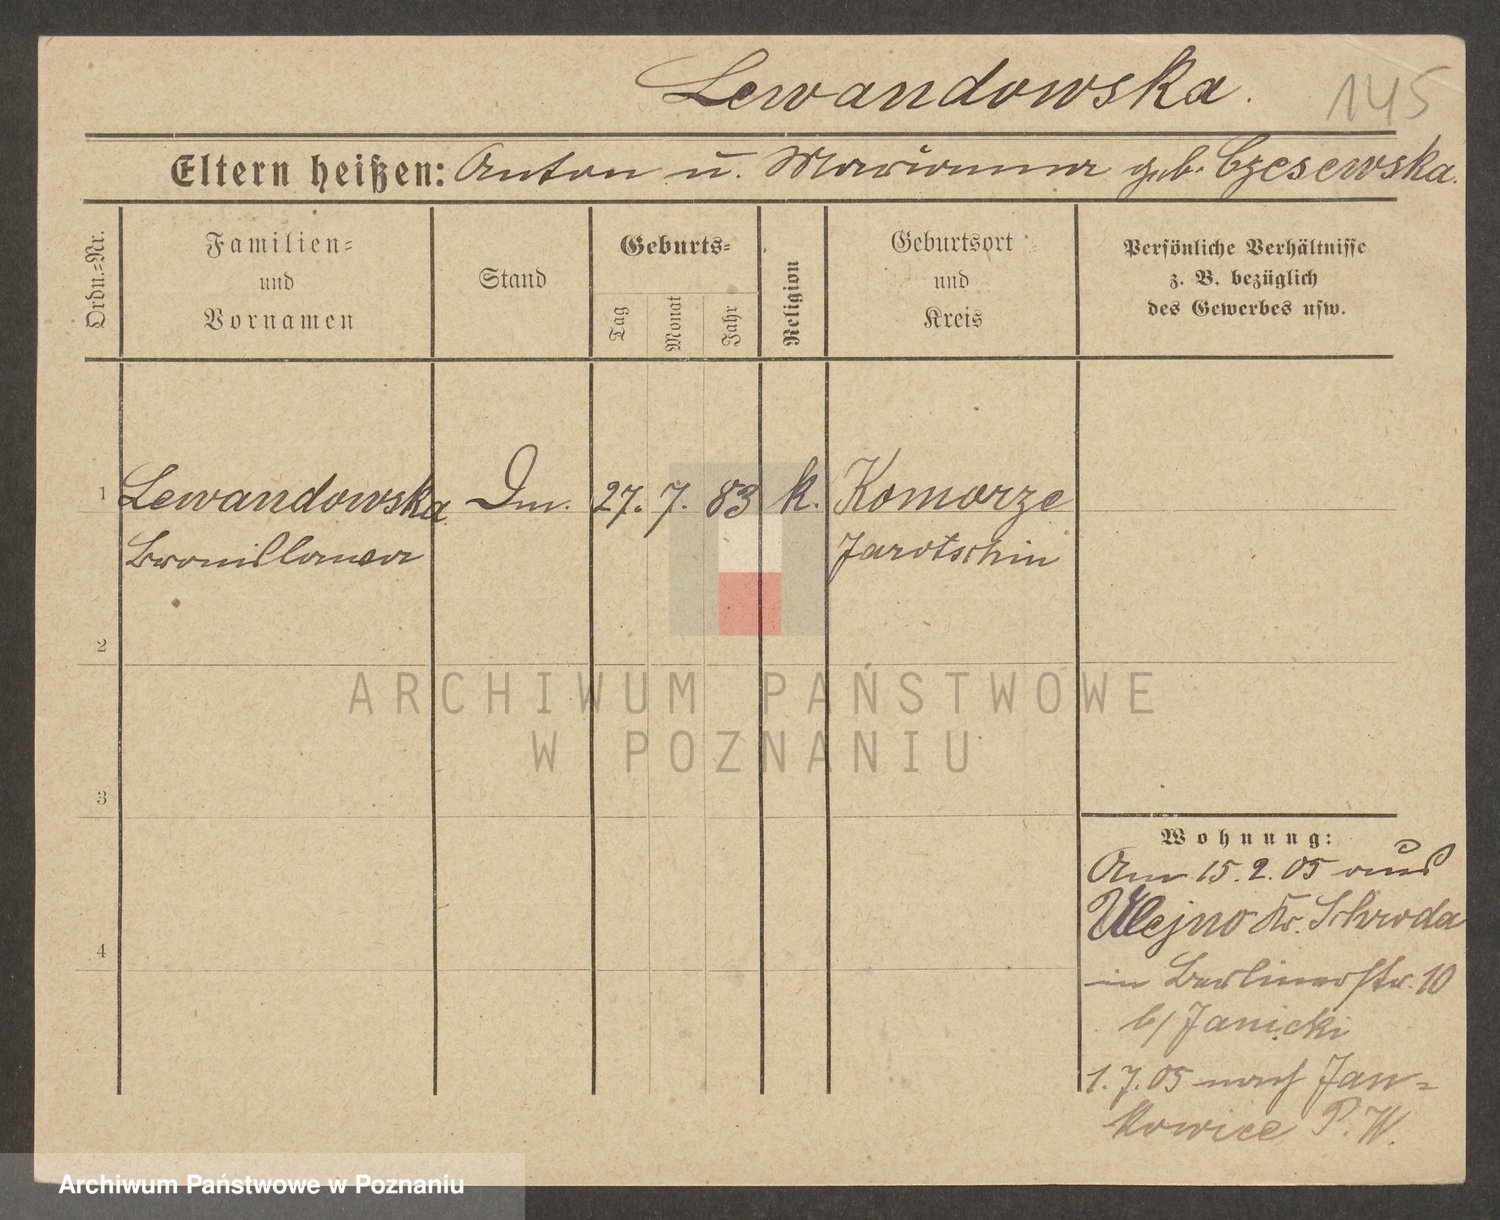 Lewandowska. 145
Eltern heißen: Anton u. Marianna geb. Czesewska.
Ordn.-Nr.
Familien-
und
Vornamen
Stand
Geburts-
Tag
Monat
Jahr
Religion
Geburtsort
und
Kreis
Persönliche Verhältnisse
z. B. bezüglich
des Gewerbes usw.
1 Lewandowska Dm. 27. 7. 83 k. Komorze
Bronislawa Jarotschin
2
ARCHIWUM PAŃSTWOWE
W POZNANIU
3
Wohnung:
Am 15.2.05 aus
Ulejno Kr. Schroda
4
in Berlinerstr. 10
b/ Janicki
1.7.05 nach Jan-
kowice P. W.
Archiwum Państwowe w Poznaniu